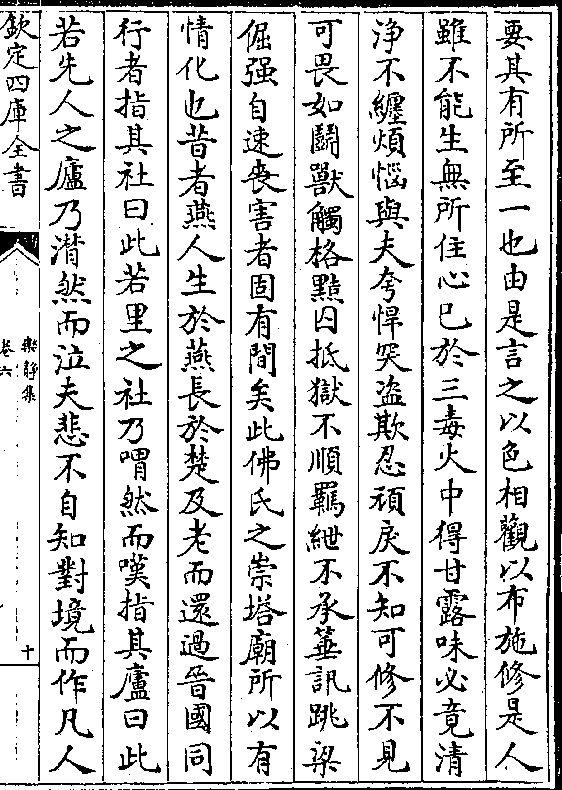 要其有所至一也由是言之以色相觀以布施修是人
雖不能生無所住心已於三毒火中得甘露味必竟清
浄不纏煩惱與夫夸悍突盗欺忍頑戾不知可修不見
可畏如鬭獸觸格黠囚抵獄不順羈紲不承箠訊跳梁
倔强自速喪害者固有間矣此佛氏之崇塔廟所以有
情化也昔者燕人生於燕長於楚及老而還過晉國同
行者指其社曰此若里之社乃喟然而嘆指其廬曰此
若先人之廬乃潸然而泣夫悲不自知對境而作凡人
欽定四庫全書
樂靜集
卷六
十